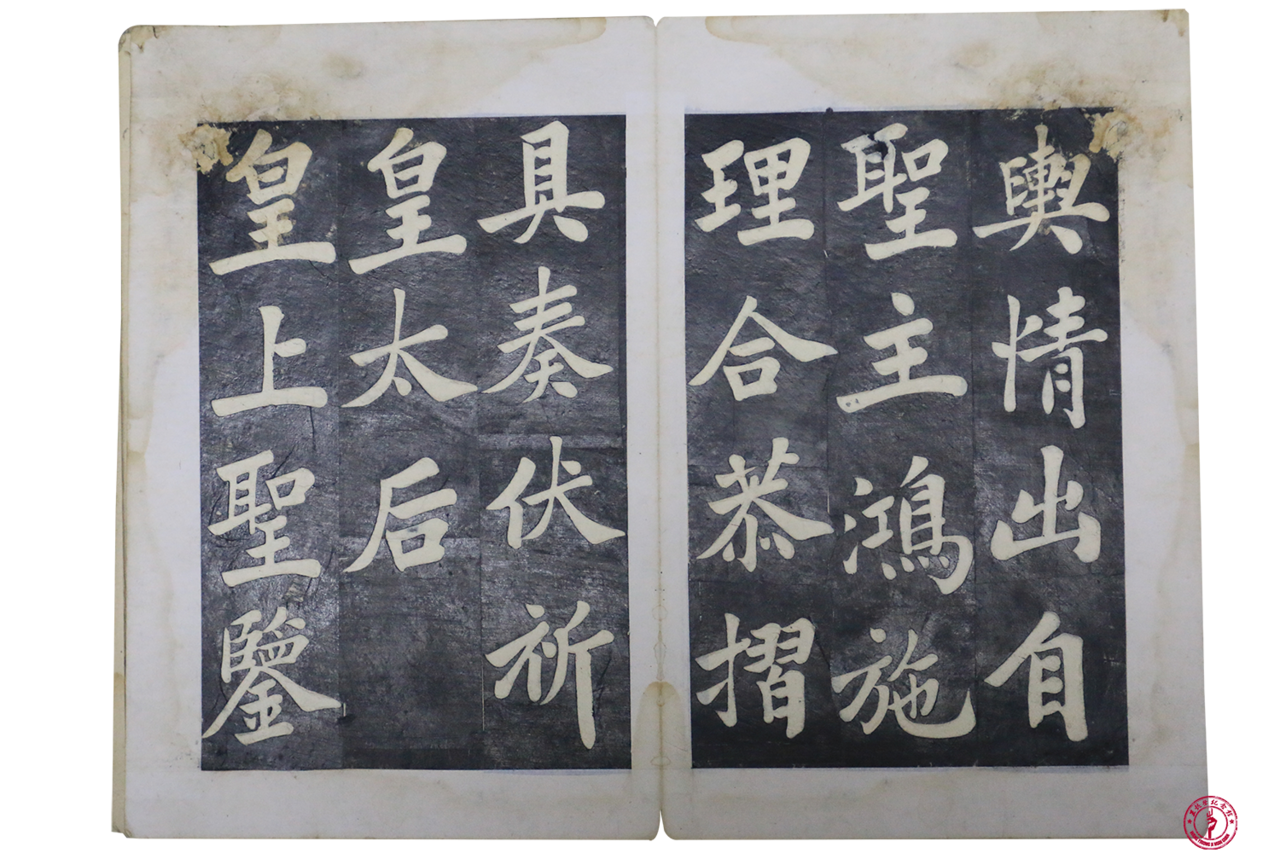 輿情出自
聖主鴻施
理合恭摺
具奏伏祈
皇太后
皇上聖鑒